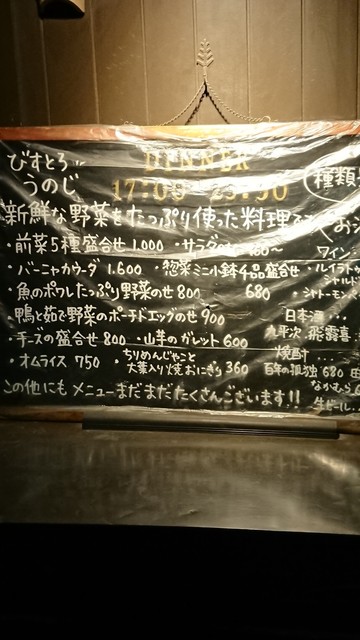 びすとろ
うのじ
DINNER
17:00
種類
新鮮な野菜をたっぷり使った料理
・前菜5種盛合せ 1,000 ・サラダ
ワイン
・バーニャカウダ 1,600 ・惣菜ミニ小鉢4品盛合せ
680
・ルイラト
シャルド
・魚のポワレたっぷり野菜のせ 800
・シャトーモン
・鴨と茹で野菜のポーチドエッグのせ 900
日本酒...
九平次 飛露喜
・チーズの盛合せ 800 ・山芋のガレット 600
焼酎...
・オムライス 750
ちりめんじゃこと
大葉入り焼おにぎり 360
百年の孤独 680
なかむら
この他にもメニューまだまだたくさんございます!!
生ビール